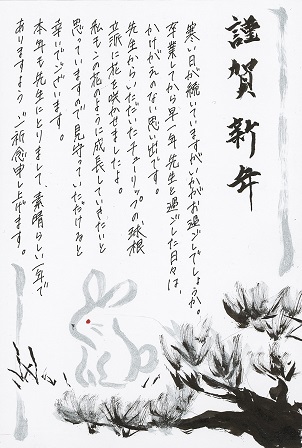 謹賀新年
寒い日が続いていますがいかがお過ごしでしょうか。
卒業してから早一年、先生と過ごした日々は、
かけがえのない思い出です。
先生からいただいたチューリップの球根
立派に花を咲かせましたよ。
私もこの花のように成長していきたいと
思っていますので見守っていただけると
幸いでございます。
本年も先生にとりまして、素晴らしい年で
ありますようご祈念申し上げます。